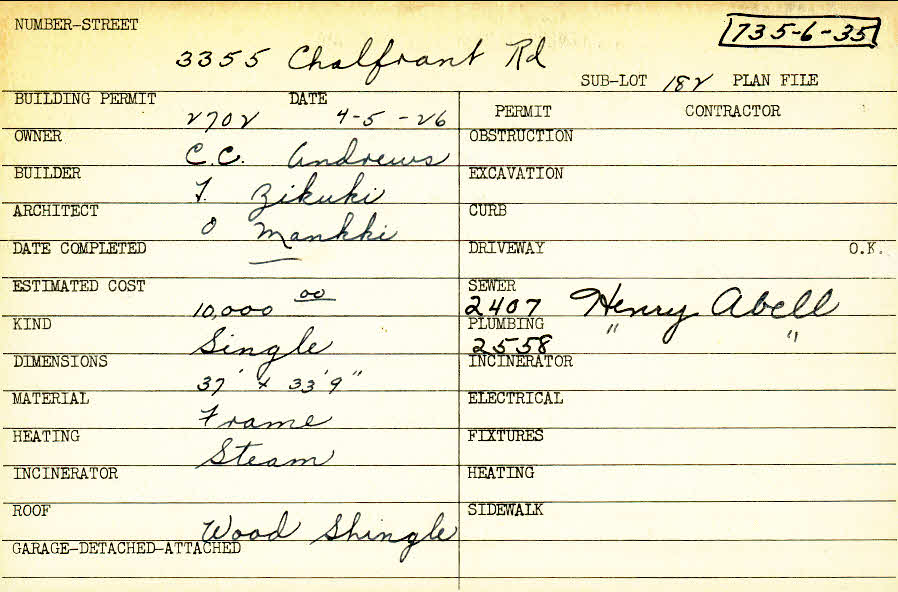 NUMBER-STREET
735-6-35
3355 Chalfrant Rd
SUB-LOT 182 PLAN FILE
BUILDING PERMIT 2702 DATE 4-5-26
PERMIT CONTRACTOR
OWNER C.C. Andrews
OBSTRUCTION
BUILDER F. Zikuki
EXCAVATION
ARCHITECT O Mankki
CURB
DATE COMPLETED —
DRIVEWAY O.K.
ESTIMATED COST 10,000 00
SEWER 2407 Henry Abell
KIND Single
PLUMBING 2558 " "
DIMENSIONS 37' x 33'9"
INCINERATOR
MATERIAL Frame
ELECTRICAL
HEATING Steam
FIXTURES
INCINERATOR
HEATING
ROOF Wood Shingle
SIDEWALK
GARAGE-DETACHED-ATTACHED